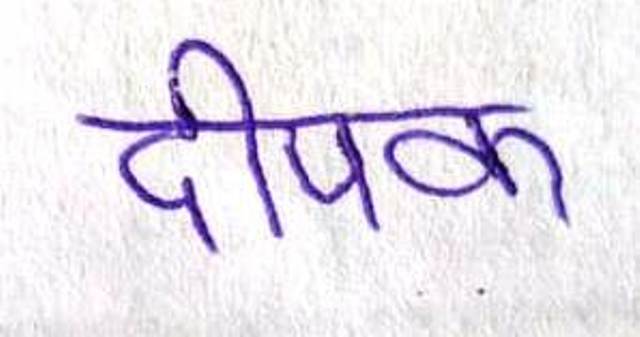 दीपक